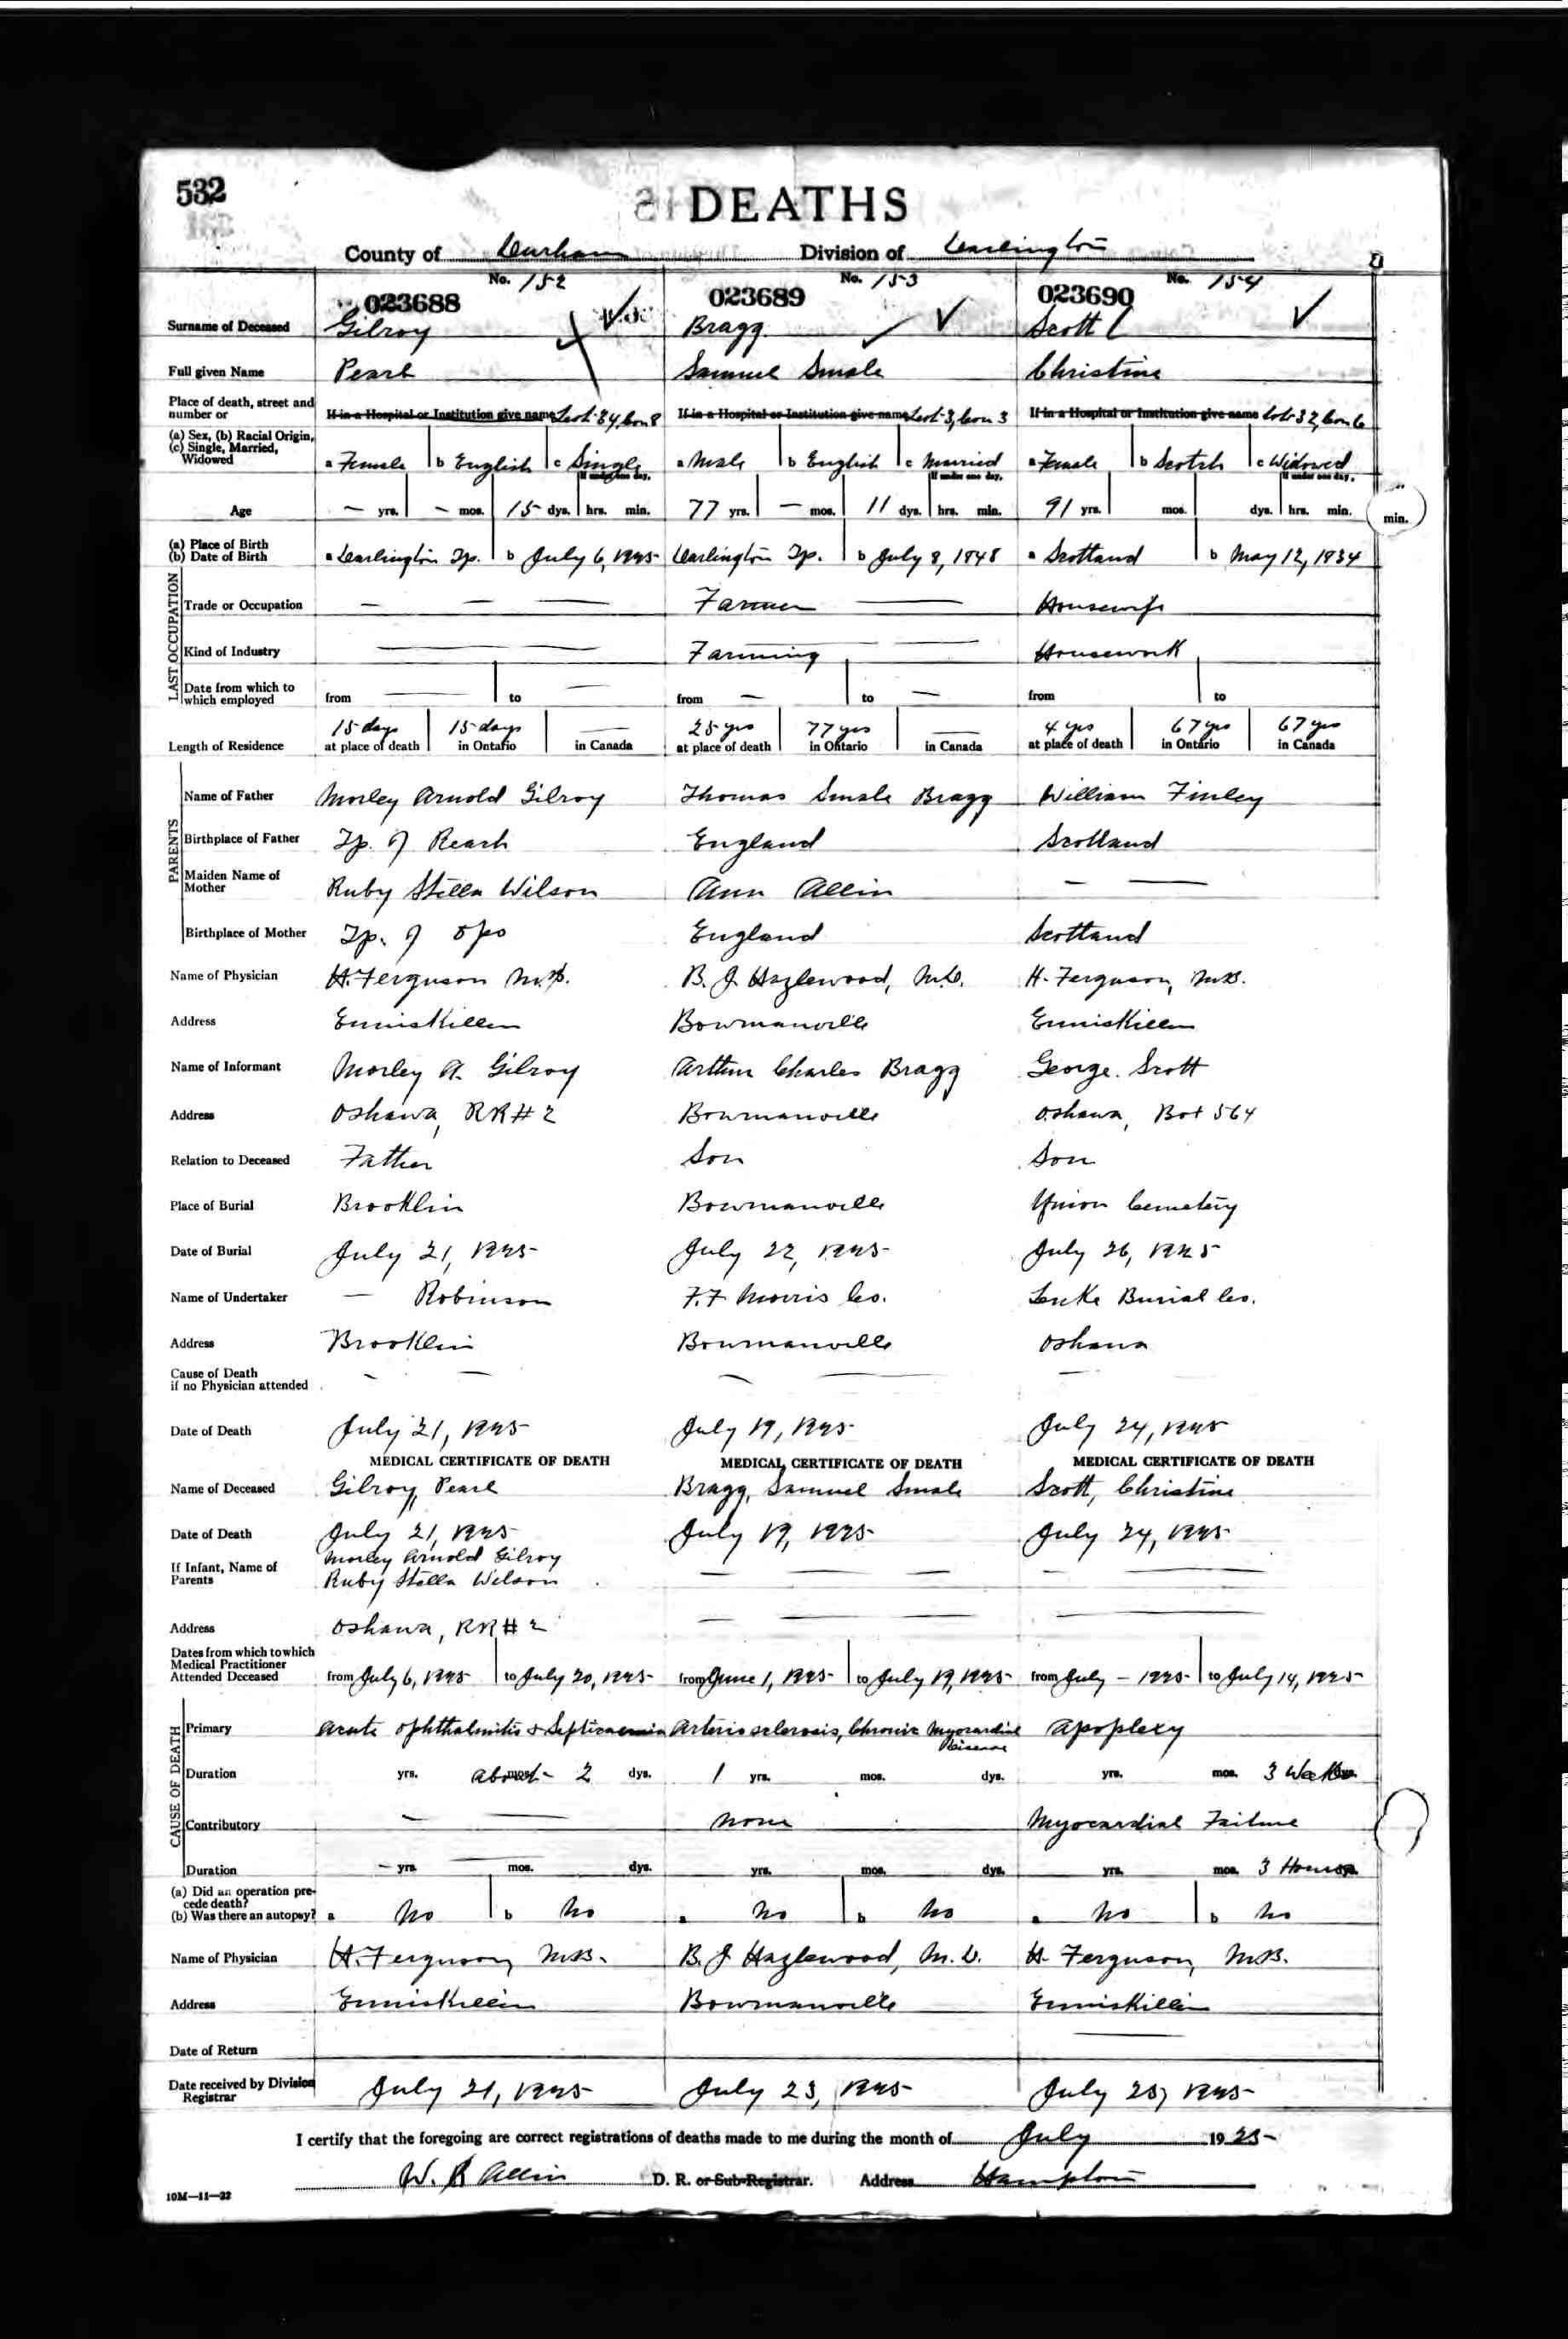 532
DEATHS
County of Durham Division of Darlington
No. 152 No. 153 No. 154
023688 023689 023690
Surname of Deceased Gilroy Bragg Scott
Full given Name Pearl Samuel Smale Christine
Place of death, street and number or If in a Hospital or Institution give name Lot 34, Con 8 If in a Hospital or Institution give name Lot 3, Con 3 If in a Hospital or Institution give name Lot 32, Con 6
(a) Sex, (b) Racial Origin, (c) Single, Married, Widowed a Female b English c Single a Male b English c Married a Female b Scotch c Widowed
If under one day. If under one day. If under one day.
Age — yrs. — mos. 15 dys. hrs. min. 77 yrs. — mos. 11 dys. hrs. min. 91 yrs. mos. dys. hrs. min. min.
(a) Place of Birth (b) Date of Birth a Darlington Tp. b July 6, 1925 Darlington Tp. b July 8, 1848 a Scotland b May 12, 1834
LAST OCCUPATION
Trade or Occupation — — — Farmer — Housewife
Kind of Industry — — Farming — — Housework
Date from which to which employed from — to — from — to — from to
15 days 15 days — 25 yrs 77 yrs — 4 yrs 67 yrs 67 yrs
Length of Residence at place of death in Ontario in Canada at place of death in Ontario in Canada at place of death in Ontario in Canada
PARENTS
Name of Father Morley Arnold Gilroy Thomas Smale Bragg William Finley
Birthplace of Father Tp. of Reach England Scotland
Maiden Name of Mother Ruby Stella Wilson Ann Allin — —
Birthplace of Mother Tp. of Ops England Scotland
Name of Physician H. Ferguson M.B. B. J. Hazlewood, M.D. H. Ferguson, M.B.
Address Enniskillen Bowmanville Enniskillen
Name of Informant Morley A. Gilroy Arthur Charles Bragg George. Scott
Address Oshawa, RR# 2 Bowmanville Oshawa, Box 564
Relation to Deceased Father Son Son
Place of Burial Brooklin Bowmanville Union Cemetery
Date of Burial July 21, 1925 July 22, 1925 July 26, 1925
Name of Undertaker — Robinson F.F Morris Co. Luke Burial Co.
Address Brooklin Bowmanville Oshawa
Cause of Death if no Physician attended — — — — —
Date of Death July 21, 1925 July 19, 1925 July 24, 1925
MEDICAL CERTIFICATE OF DEATH MEDICAL CERTIFICATE OF DEATH MEDICAL CERTIFICATE OF DEATH
Name of Deceased Gilroy, Pearl Bragg, Samuel Smale Scott, Christine
Date of Death July 21, 1925 July 19, 1925 July 24, 1925
If Infant, Name of Parents Morley Arnold Gilroy — — — — —
Ruby Stella Wilson
Address Oshawa, RR# 2 — — — —
Dates from which to which Medical Practitioner Attended Deceased from July 6, 1925 to July 20, 1925 from June 1, 1925 to July 19, 1925 from July – 1925 to July 14, 1925
CAUSE OF DEATH
Primary Acute Ophthalmitis & Septicaemia Arteriosclerosis, Chronic Myocardial Disease Apoplexy
Duration yrs. about mos. 2 dys. 1 yrs. mos. dys. yrs. mos. 3 Weeks dys.
Contributory — — None Myocardial Failure
Duration – yrs. mos. dys. yrs. mos. dys. yrs. mos. 3 Hours dys.
(a) Did an operation precede death? (b) Was there an autopsy? a No b No a No b No a No b No
Name of Physician H. Ferguson, M.B. B. J Hazlewood, M.D. H. Ferguson, M.B.
Address Enniskillen Bowmanville Enniskillen
Date of Return —
Date received by Division Registrar July 21, 1925 July 23, 1925 July 25, 1925
I certify that the foregoing are correct registrations of deaths made to me during the month of July 1925
W. R Allin D. R. or Sub-Registrar. Address Hampton
10M—11—22